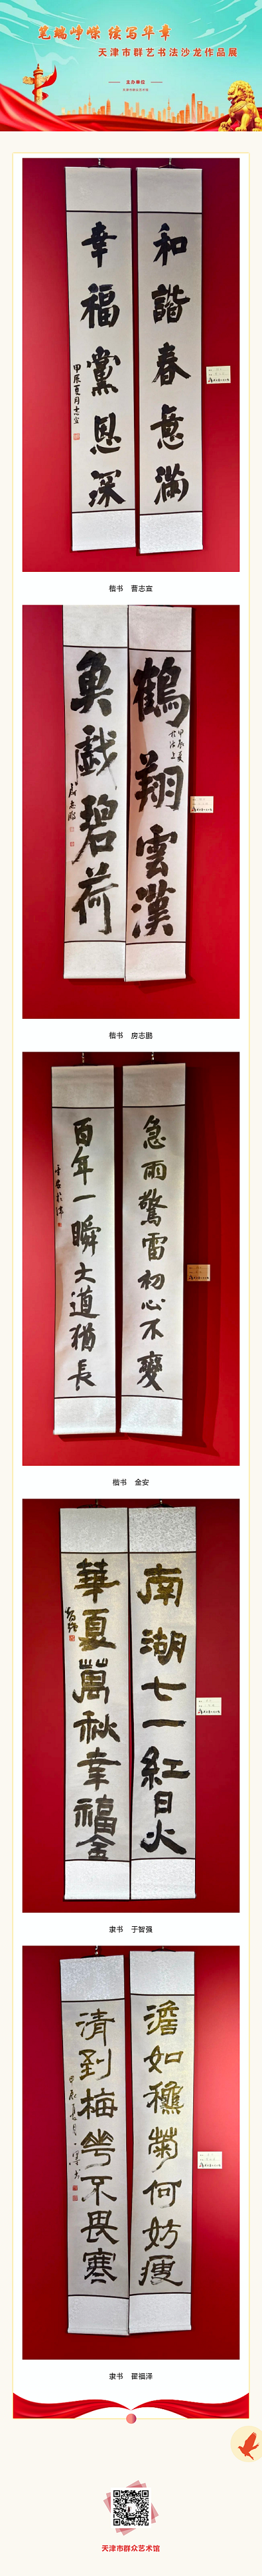 笔端峥嵘 续写华章
天津市群艺书法沙龙作品展
主办单位
天津市群众艺术馆
和諧春意滿
幸福黨恩深
楷书 曹志富
鶴翔雲漢
魚戲碧荷
楷书 房志鹏
急雨驚雷初心不變
百年一瞬大道猶長
楷书 金安
南湖七一紅日火
華夏萬秋幸福金
隶书 于智强
澹如穐菊何妨瘦
清到梅花不畏寒
隶书 翟福泽
天津市群众艺术馆